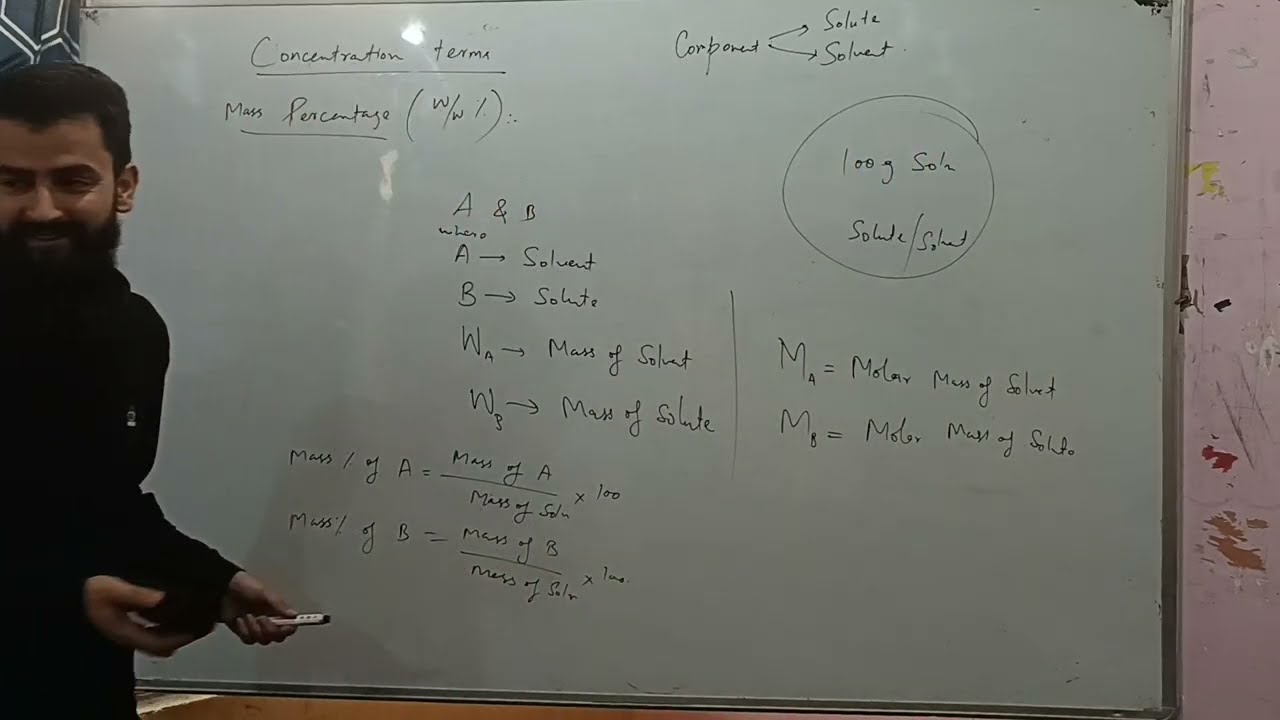 Concentration terms
Mass Percentage (W/W %):.
Component → Solute
→ Solvent.
100g Soln
Solute/Solvent
A & B
where
A → Solvent
B → Solute
W_A → Mass of Solvent
W_B → Mass of Solute
M_A = Molar Mass of Solvent
M_B = Molar Mass of Solute
Mass % of A = Mass of A / Mass of Soln × 100
Mass % of B = Mass of B / Mass of Soln × 100.